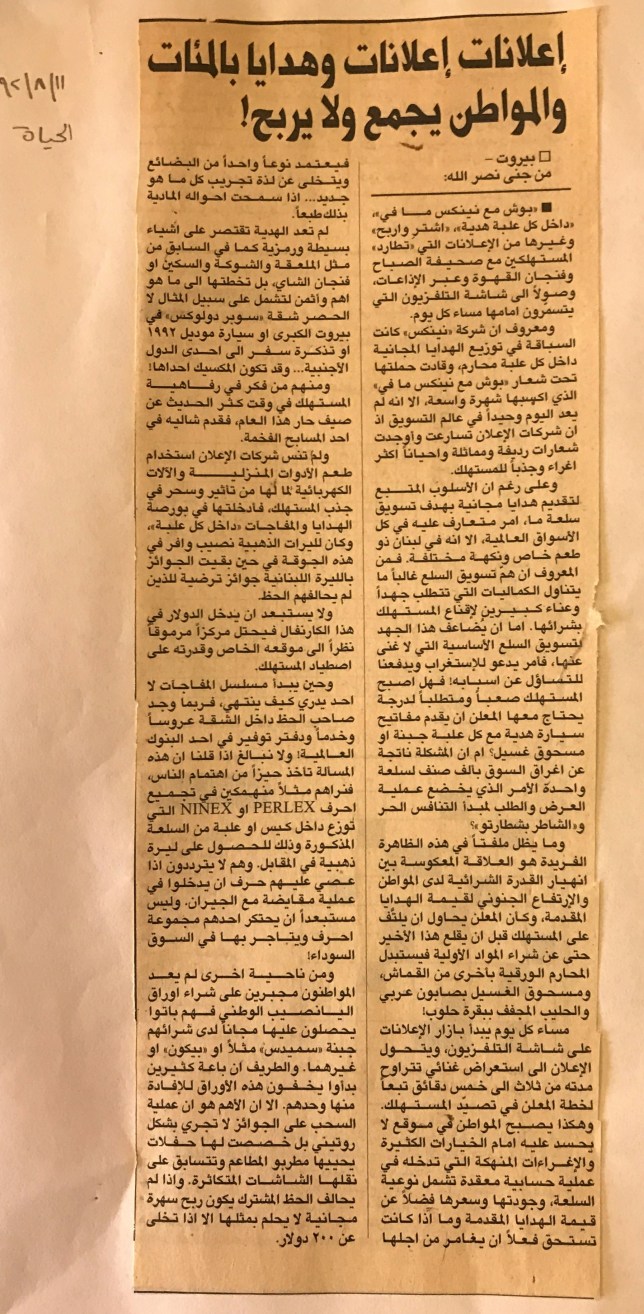 ٩٢/٨/١١
الحياة
إعلانات إعلانات وهدايا بالمئات
والمواطن يجمع ولا يربح!
□ بيروت –
من جنى نصر الله:
■ «بوش مع نينكس مـا في»،
«داخل كل علبة هدية»، «اشتر واربح»
وغيرها من الإعلانات التي «تطارد»
المستهلكين مع صحيفة الصباح
وفنجان القهوة وعبر الإذاعات،
وصولاً الى شاشة التلفزيون التي
يتسمرون امامها مساء كل يوم.
ومعروف ان شركة «نينكس» كانت
السباقة في توزيع الهدايا المجانية
داخل كل علبة محارم، وقادت حملتها
تحت شعار «بوش مع نينكس ما في»
الذي اكسبها شهرة واسعة، الا انه لم
يعد اليوم وحيداً في عالم التسويق اذ
ان شركات الإعلان تسارعت واوجدت
شعارات رديفة ومماثلة واحياناً اكثر
اغراء وجذباً للمستهلك.
وعلى رغم ان الأسلوب المتبع
لتقديم هدايا مجانية بهدف تسويق
سلعة ما، امر متعارف عليه في كل
الأسواق العالمية، الا انه في لبنان ذو
طعم خاص ونكهة مختلفة. فمن
المعروف ان همّ تسويق السلع غالباً ما
يتناول الكماليات التي تتطلب جهداً
وعناء كبيرين لإقناع المستهلك
بشرائها. اما ان يُضاعف هذا الجهد
لتسويق السلع الأساسية التي لا غنى
عنها، فامر يدعو للإستغراب ويدفعنا
للتساؤل عن اسبابه! فهل اصبح
المستهلك صعباً ومتطلباً لدرجة
يحتاج معها المعلن ان يقدم مفاتيح
سيارة هدية مع كل علبة جبنة او
مسحوق غسيل؟ ام ان المشكلة ناتجة
عن اغراق السوق بالف صنف لسلعة
واحدة الأمر الذي يخضع عملية
العرض والطلب لمبدأ التنافس الحر
و«الشاطر بشطارتو»؟
وما يظل ملفتاً في هذه الظاهرة
الفريدة هو العلاقة المعكوسة بين
انهيار القدرة الشرائية لدى المواطن
والإرتفاع الجنوني لقيمة الهدايا
المقدمة، وكان المعلن يحاول ان يلتف
على المستهلك قبل ان يقلع هذا الأخير
حتى عن شراء المواد الأولية فيستبدل
المحارم الورقية بأخرى من القماش،
ومسحوق الغسيل بصابون عربي
والحليب المجفف ببقرة حلوب!
مساء كل يوم يبدأ بازار الإعلانات
على شاشة التلفزيون، ويتحول
الإعلان الى استعراض غنائي تتراوح
مدته من ثلاث الى خمس دقائق تبعاً
لخطة المعلن في تصيّد المستهلك.
وهكذا يصبح المواطن في موقع لا
يحسد عليه امام الخيارات الكثيرة
والإغراءات المنهكة التي تدخله في
عملية حسابية معقدة تشمل نوعية
السلعة، وجودتها وسعرها فضلاً عن
قيمة الهدايا المقدمة وما اذا كانت
تستحق فعلاً ان يغامر من اجلها
فيعتمد نوعاً واحداً من البضائع
ويتخلى عن لذة تجريب كل ما هو
جديد... اذا سمحت احواله المادية
بذلك طبعاً.
لم تعد الهدية تقتصر على اشياء
بسيطة ورمزية كما في السابق من
مثل الملعقة والشوكة والسكين او
فنجان الشاي، بل تخطتها الى ما هو
اهم واثمن لتشمل على سبيل المثال لا
الحصر شقة «سوبر دولوكس» في
بيروت الكبرى او سيارة موديل ١٩٩٢
او تذكرة سفر الى احدى الدول
الأجنبية... وقد تكون المكسيك احداها!
ومنهم من فكر في رفاهية
المستهلك في وقت كثر الحديث عن
صيف حار هذا العام، فقدم شاليه في
احد المسابح الفخمة.
ولم تنس شركات الإعلان استخدام
طعم الأدوات المنزلية والآلات
الكهربائية لما لها من تأثير وسحر في
جذب المستهلك، فأدخلتها في بورصة
الهدايا والمفاجآت «داخل كل علبة»،
وكان لليرات الذهبية نصيب وافر في
هذه الجوقة في حين بقيت الجوائز
بالليرة اللبنانية جوائز ترضية للذين
لم يحالفهم الحظ.
ولا يستبعد ان يدخل الدولار في
هذا الكارنفال فيحتل مركزاً مرموقاً
نظراً الى موقعه الخاص وقدرته على
اصطياد المستهلك.
وحين يبدأ مسلسل المفاجآت لا
احد يدري كيف ينتهي، فربما وجد
صاحب الحظ داخل الشقة عروساً
وخدماً ودفتر توفير في احد البنوك
العالمية! ولا نبالغ اذا قلنا ان هذه
المسالة تاخذ حيزاً من اهتمام الناس،
فنراهم مثلاً منهمكين في تجميع
احرف PERLEX او NINEX التي
توزع داخل كيس او علبة من السلعة
المذكورة وذلك للحصول على ليرة
ذهبية في المقابل. وهم لا يترددون اذا
عصي عليهم حرف ان يدخلوا في
عملية مقايضة مع الجيران. وليس
مستبعداً ان يحتكر احدهم مجموعة
احرف ويتاجر بها في السوق
السوداء!
ومن ناحية اخرى لم يعد
المواطنون مجبرين على شراء اوراق
اليانصيب الوطني فهم باتوا
يحصلون عليها مجاناً لدى شرائهم
جبنة «سميدس» مثلاً او «بيكون» او
غيرهما. والطريف ان باعة كثيرين
بدأوا يخفون هذه الأوراق للإفادة
منها وحدهم. الا ان الأهم هو ان عملية
السحب على الجوائز لا تجري بشكل
روتيني بل خصصت لها حفلات
يحييها مطربو المطاعم وتتسابق على
نقلها الشاشات المتكاثرة. واذا لم
يحالف الحظ المشترك يكون ربح سهرة
مجانية لا يحلم بمثلها الا اذا تخلى
عن ٢٠٠ دولار.